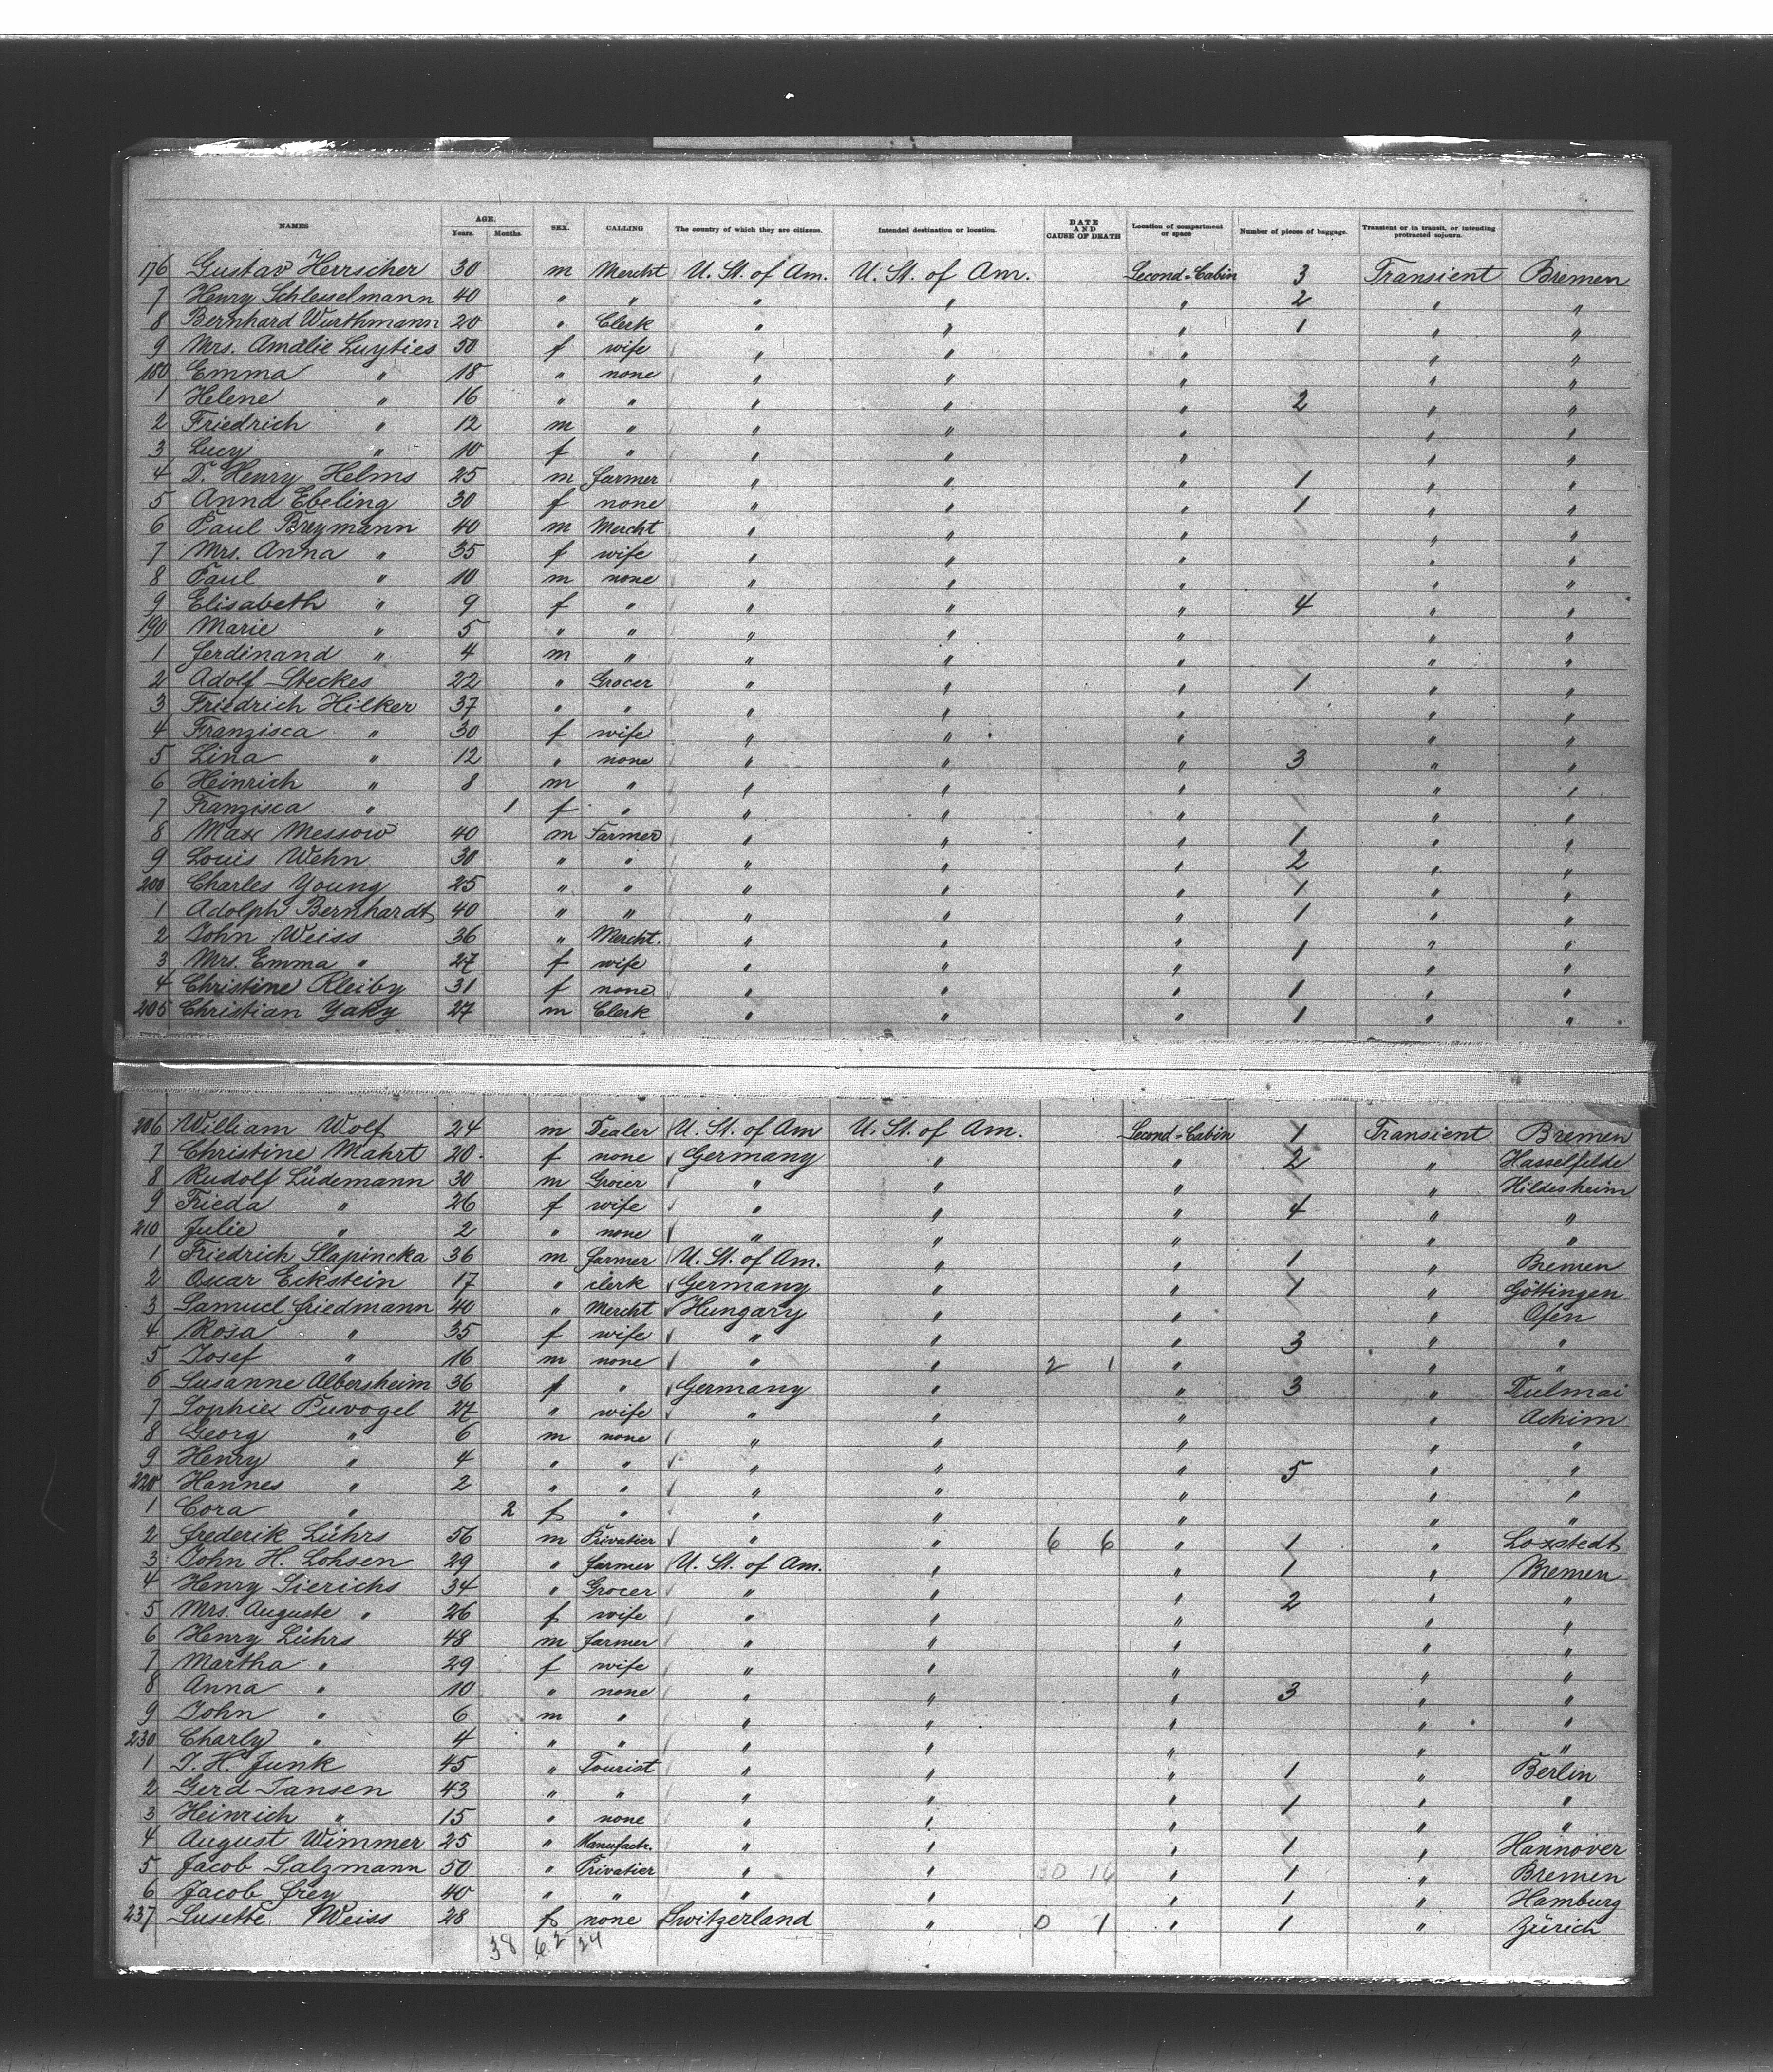 NAMES AGE. Years. Months. SEX. CALLING The country of which they are citizens. Intended destination or location. DATE AND CAUSE OF DEATH Location of compartment or space Number of pieces of baggage. Transient or in transit, or intending protracted sojourn.
176 Gustav Herrscher 30 m Mercht U. St. of Am. U. St. of Am. Second-Cabin 3 Transient Bremen
7 Henry Schlesselmann 40 " " " " " 2 " "
8 Bernhard Wurthmann 20 " Clerk " " " 1 " "
9 Mrs. Amalie Luyties 50 f wife " " " " "
180 Emma " 18 " none " " " " "
1 Helene " 16 " " " " " 2 " "
2 Friedrich " 12 m " " " " " "
3 Lucy " 10 f " " " " " "
4 Dr. Henry Helms 25 m farmer " " " 1 " "
5 Anna Ebeling 30 f none " " " 1 " "
6 Paul Breymann 40 m Mercht " " " " "
7 Mrs. Anna " 35 f wife " " " " "
8 Paul " 10 m none " " " " "
9 Elisabeth " 9 f " " " " 4 " "
190 Marie " 5 " " " " " " "
1 Ferdinand " 4 m " " " " " "
2 Adolf Steckes 22 " Grocer " " " 1 " "
3 Friedrich Hilker 37 " " " " " " "
4 Franzisca " 30 f wife " " " " "
5 Lina " 12 " none " " " 3 " "
6 Heinrich " 8 m " " " " " "
7 Franzisca " 1 f " " " " " "
8 Max Messow 40 m Farmer " " " 1 " "
9 Louis Wehn 30 " " " " " 2 " "
200 Charles Young 25 " " " " " 1 " "
1 Adolph Bernhardt 40 " " " " " 1 " "
2 John Weiss 36 " Mercht. " " " 1 " "
3 Mrs. Emma " 27 f wife " " " " "
4 Christine Kleiby 31 f none " " " 1 " "
205 Christian Yaky 27 m Clerk " " " 1 " "
206 William Wolf 24 m Dealer U. St. of Am U. St. of Am. Second-Cabin 1 Transient Bremen
7 Christine Mahrt 20 f none Germany " " 2 " Hasselfelde
8 Rudolf Lüdemann 30 m Grocer " " " " Hildesheim
9 Frieda " 26 f wife " " " 4 " "
210 Julie " 2 " none " " " " "
1 Friedrich Slapincka 36 m farmer U. St. of Am. " " 1 " Bremen
2 Oscar Eckstein 17 " clerk Germany " " 1 " Göttingen
3 Samuel Friedmann 40 " Mercht Hungary " " " Ofen
4 Rosa " 35 f wife " " " 3 " "
5 Josef " 16 m none " " 2 1 " " "
6 Susanne Albersheim 36 f " Germany " " 3 " Dulmai
7 Sophie Puvogel 27 " wife " " " " Achim
8 Georg " 6 m none " " " " "
9 Henry " 4 " " " " " 5 " "
220 Hannes " 2 " " " " " " "
1 Cora " 2 f " " " " " "
2 Frederik Lührs 56 m Privatier " " 6 6 " 1 " Loxstedt
3 John H. Lohsen 29 " farmer U. St. of Am. " " 1 " Bremen
4 Henry Sierichs 34 " Grocer " " " 2 " "
5 Mrs. Auguste " 26 f wife " " " " "
6 Henry Lührs 48 m farmer " " " " "
7 Martha " 29 f wife " " " " "
8 Anna " 10 " none " " " 3 " "
9 John " 6 m " " " " " "
230 Charly " 4 " " " " " " "
1 J. H. Junk 45 " Tourist " " " 1 " Berlin
2 Gerd Jansen 43 " " " " " 1 " "
3 Heinrich " 15 " none " " " " "
4 August Wimmer 25 " Manufactr. " " " 1 " Hannover
5 Jacob Salzmann 50 " Privatier " " 30 16 " 1 " Bremen
6 Jacob Frey 40 " " " " " 1 " Hamburg
237 Susette Weiss 28 f none Switzerland " 0 1 " 1 " Zürich
38 62 24